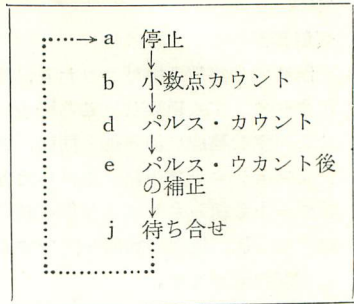 a 停止
b 小数点カウント
d パルス・カウント
e パルス・ウカント後
の補正
j 待ち合せ